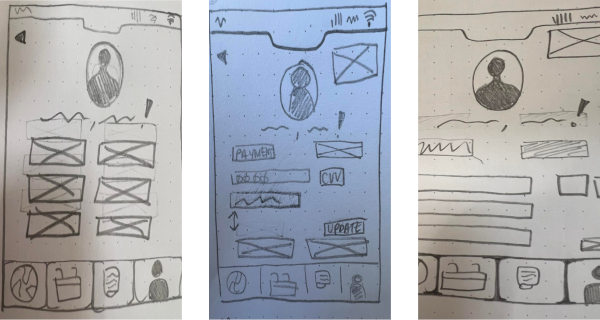 PAYMENT
CVV
UPDATE